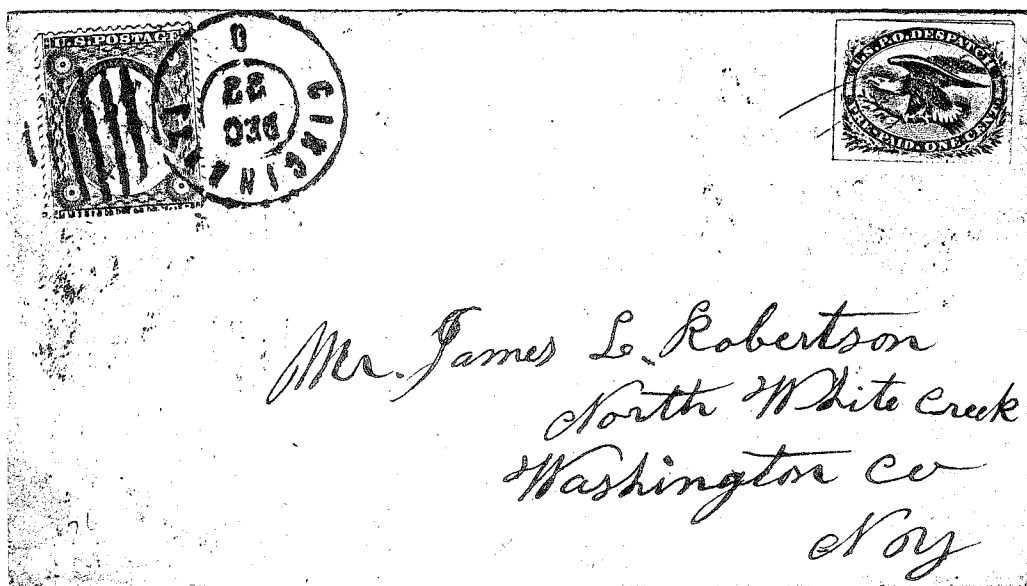 U.S. POSTAGE
CINCINNATI O
DEC
22
U.S.P.O. DESPATCH
PRE-PAID. ONE CENT.
Mr. James L. Robertson
North White Creek
Washington Co
N.Y